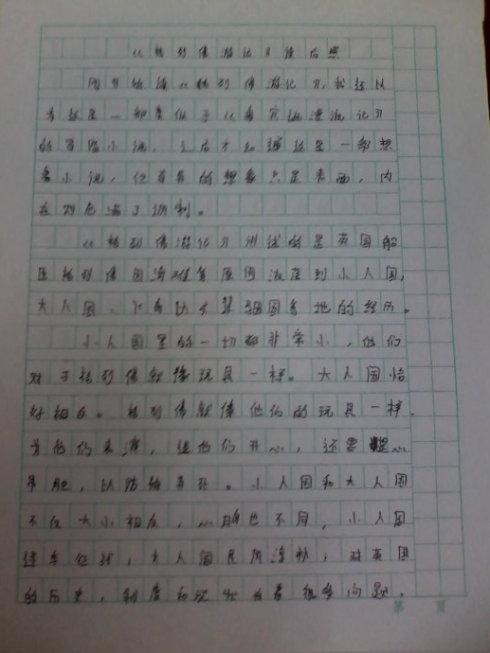 《格列佛游记》读后感
刚开始读《格列佛游记》，我还以
为这是一部类似于《鲁宾逊漂流记》
的冒险小说，之后才知道这是一部想
象小说，但有有的想象只是表面，内
在却充满了讽刺。
《格列佛游记》讲述的是英国船
医格列佛因海难等原因流落到小人国，
大人国、以及国等地的经历。
小人国里的一切都非常小，他们
对于格列佛就像玩具一样。大人国恰
好相反。格列佛就像他们的玩具一样，
为他们表演，让他们开心，还要提心
吊胆，以防被弄死。小人国和大人国
不仅大小相反，心胸也不同，小人国
，大人国民风淳朴，对英国
的历史，制度和现状有着很多问题，
第 页